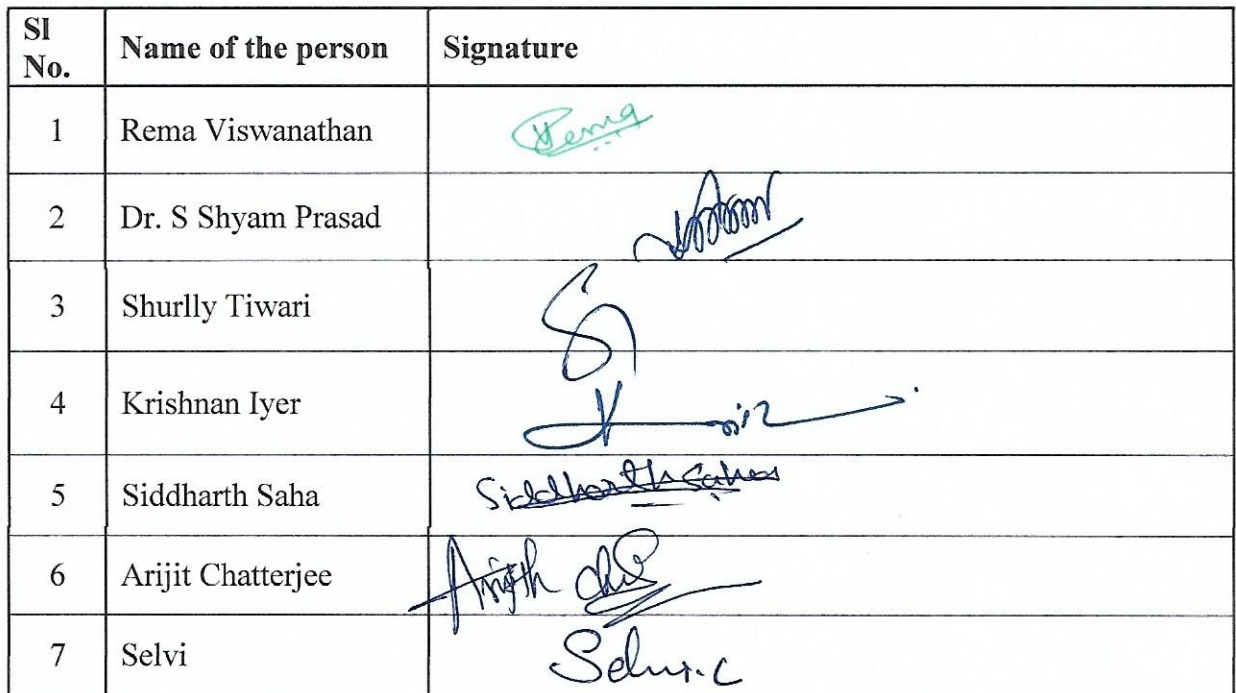 Sl No. Name of the person Signature
1 Rema Viswanathan Rema
2 Dr. S Shyam Prasad
3 Shurlly Tiwari
4 Krishnan Iyer
5 Siddharth Saha Siddharth Saha
6 Arijit Chatterjee
7 Selvi Selvi.C